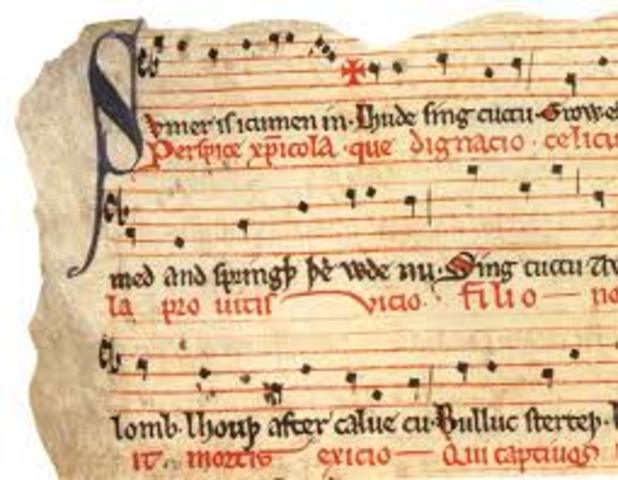 Sumer is icumen in·Lhude sing cuccu·Growe
Perspice xp̄icola·que dignacio·celicu
med and springþ þe wde nu·Sing cuccu
la pro uitis vicio·filio no
lomb·lhouþ after calue cu·Bulluc sterteþ·
it mortis exicio Qui captiuos